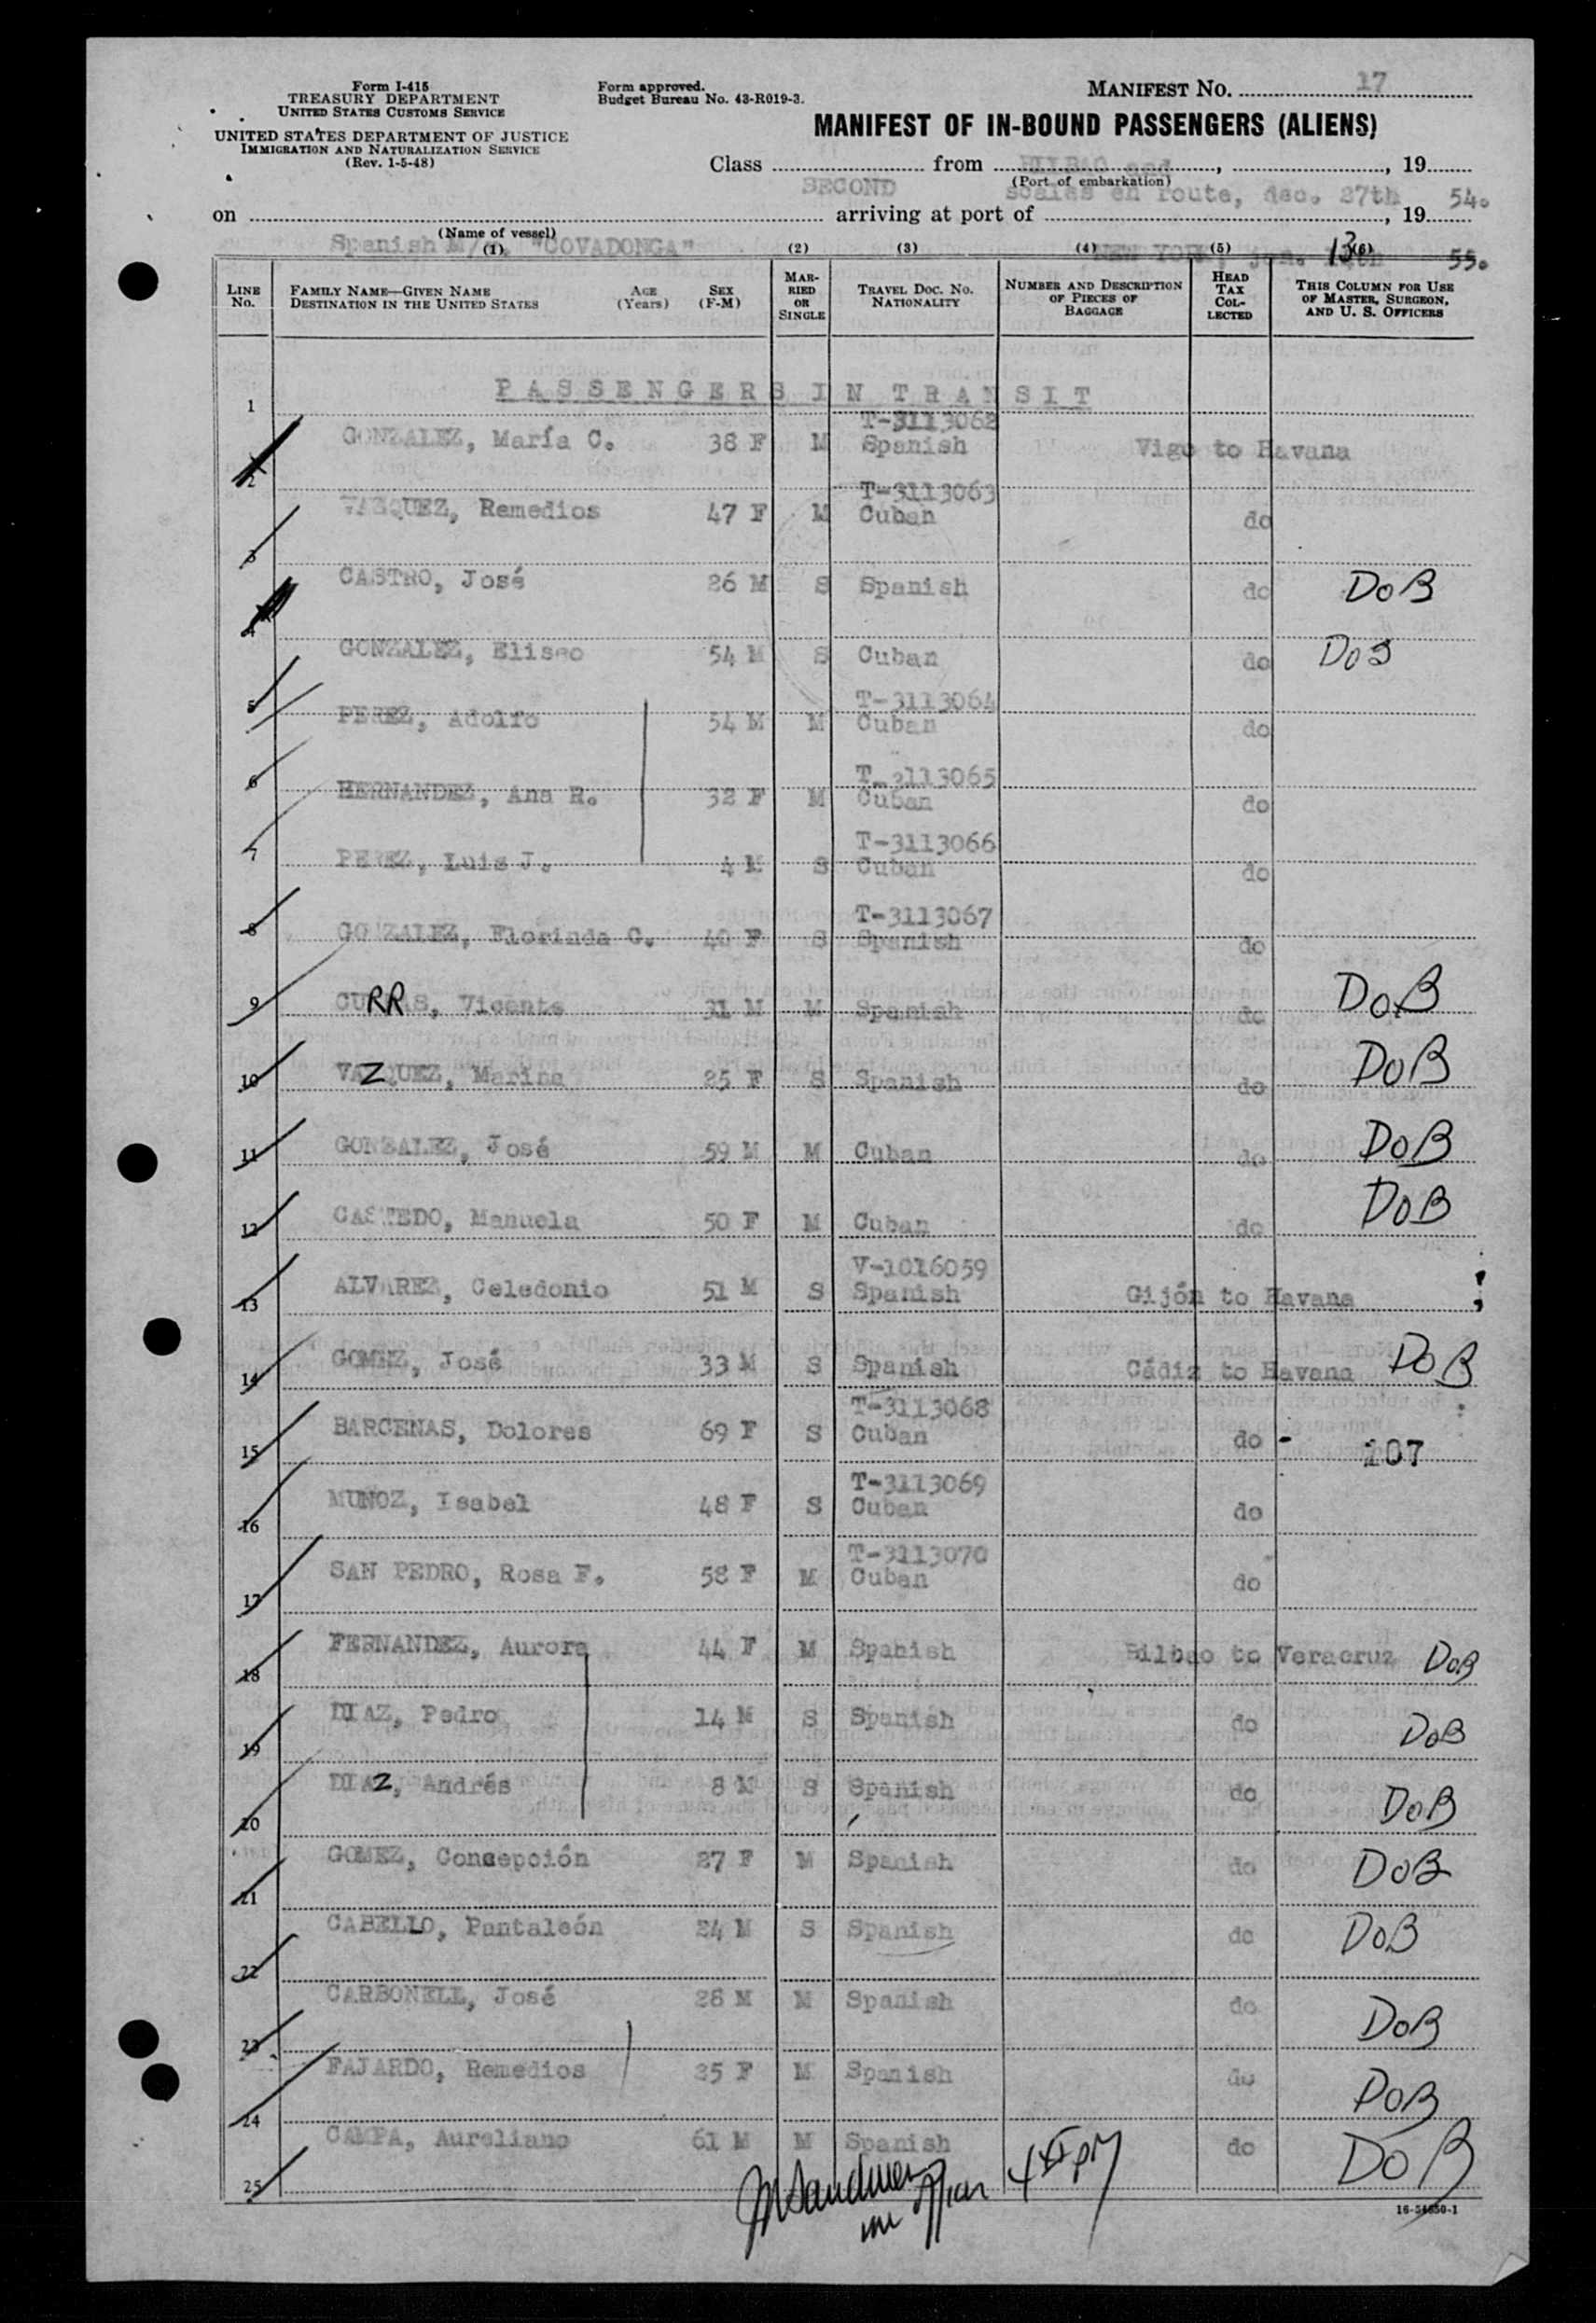 Form I-415
TREASURY DEPARTMENT
UNITED STATES CUSTOMS SERVICE
UNITED STATES DEPARTMENT OF JUSTICE
IMMIGRATION AND NATURALIZATION SERVICE
(Rev. 1-5-48)
Form approved.
Budget Bureau No. 43-R019-3.
MANIFEST No. 17
MANIFEST OF IN-BOUND PASSENGERS (ALIENS)
Class SECOND from BILBAO and scales en route, dec. 27th, 19 54.
(Port of embarkation)
on Spanish M/ "COVADONGA" arriving at port of NEW YORK, jan. 13 , 19 55.
(Name of vessel)
(1) (2) (3) (4) (5) (6)
LINE No. FAMILY NAME—GIVEN NAME DESTINATION IN THE UNITED STATES AGE (Years) SEX (F-M) MARRIED OR SINGLE TRAVEL DOC. No. NATIONALITY NUMBER AND DESCRIPTION OF PIECES OF BAGGAGE HEAD TAX COLLECTED THIS COLUMN FOR USE OF MASTER, SURGEON, AND U. S. OFFICERS
1 PASSENGERS IN TRANSIT
T-3113062
2 GONZALEZ, María C. 38 F M Spanish Vigo to Havana
T-3113063
3 VAZQUEZ, Remedios 47 F M Cuban do
4 CASTRO, José 26 M S Spanish do DoB
5 GONZALEZ, Eliseo 54 M S Cuban do DoB
T-3113064
PEREZ, Adolfo 54 M M Cuban do
T-3113065
6 HERNANDEZ, Ana R. 32 F M Cuban do
T-3113066
7 PEREZ, Luis J. 4 M S Cuban do
T-3113067
8 GONZALEZ, Florinda C. 40 F S Spanish do
9 CURRAS, Vicente 31 M M Spanish do DoB
10 VAZQUEZ, Marina 25 F S Spanish do DoB
11 GONZALEZ, José 59 M M Cuban do DoB
12 CASTEDO, Manuela 50 F M Cuban do DoB
V-1016059
13 ALVAREZ, Celedonio 51 M S Spanish Gijón to Havana
14 GOMEZ, José 33 M S Spanish Cádiz to Havana DoB
T-3113068
15 BARCENAS, Dolores 69 F S Cuban do - 107
T-3113069
16 MUNOZ, Isabel 48 F S Cuban do
T-3113070
17 SAN PEDRO, Rosa F. 58 F M Cuban do
18 FERNANDEZ, Aurora 44 F M Spanish Bilbao to Veracruz DoB
19 DIAZ, Pedro 14 M S Spanish do DoB
20 DIAZ, Andrés 8 M S Spanish do DoB
21 GOMEZ, Concepción 27 F M Spanish do DoB
22 CABELLO, Pantaleón 24 M S Spanish do DoB
23 CARBONELL, José 28 M M Spanish do DoB
24 FAJARDO, Remedios 25 F M Spanish do DoB
25 CAMPA, Aureliano 61 M M Spanish do DoB